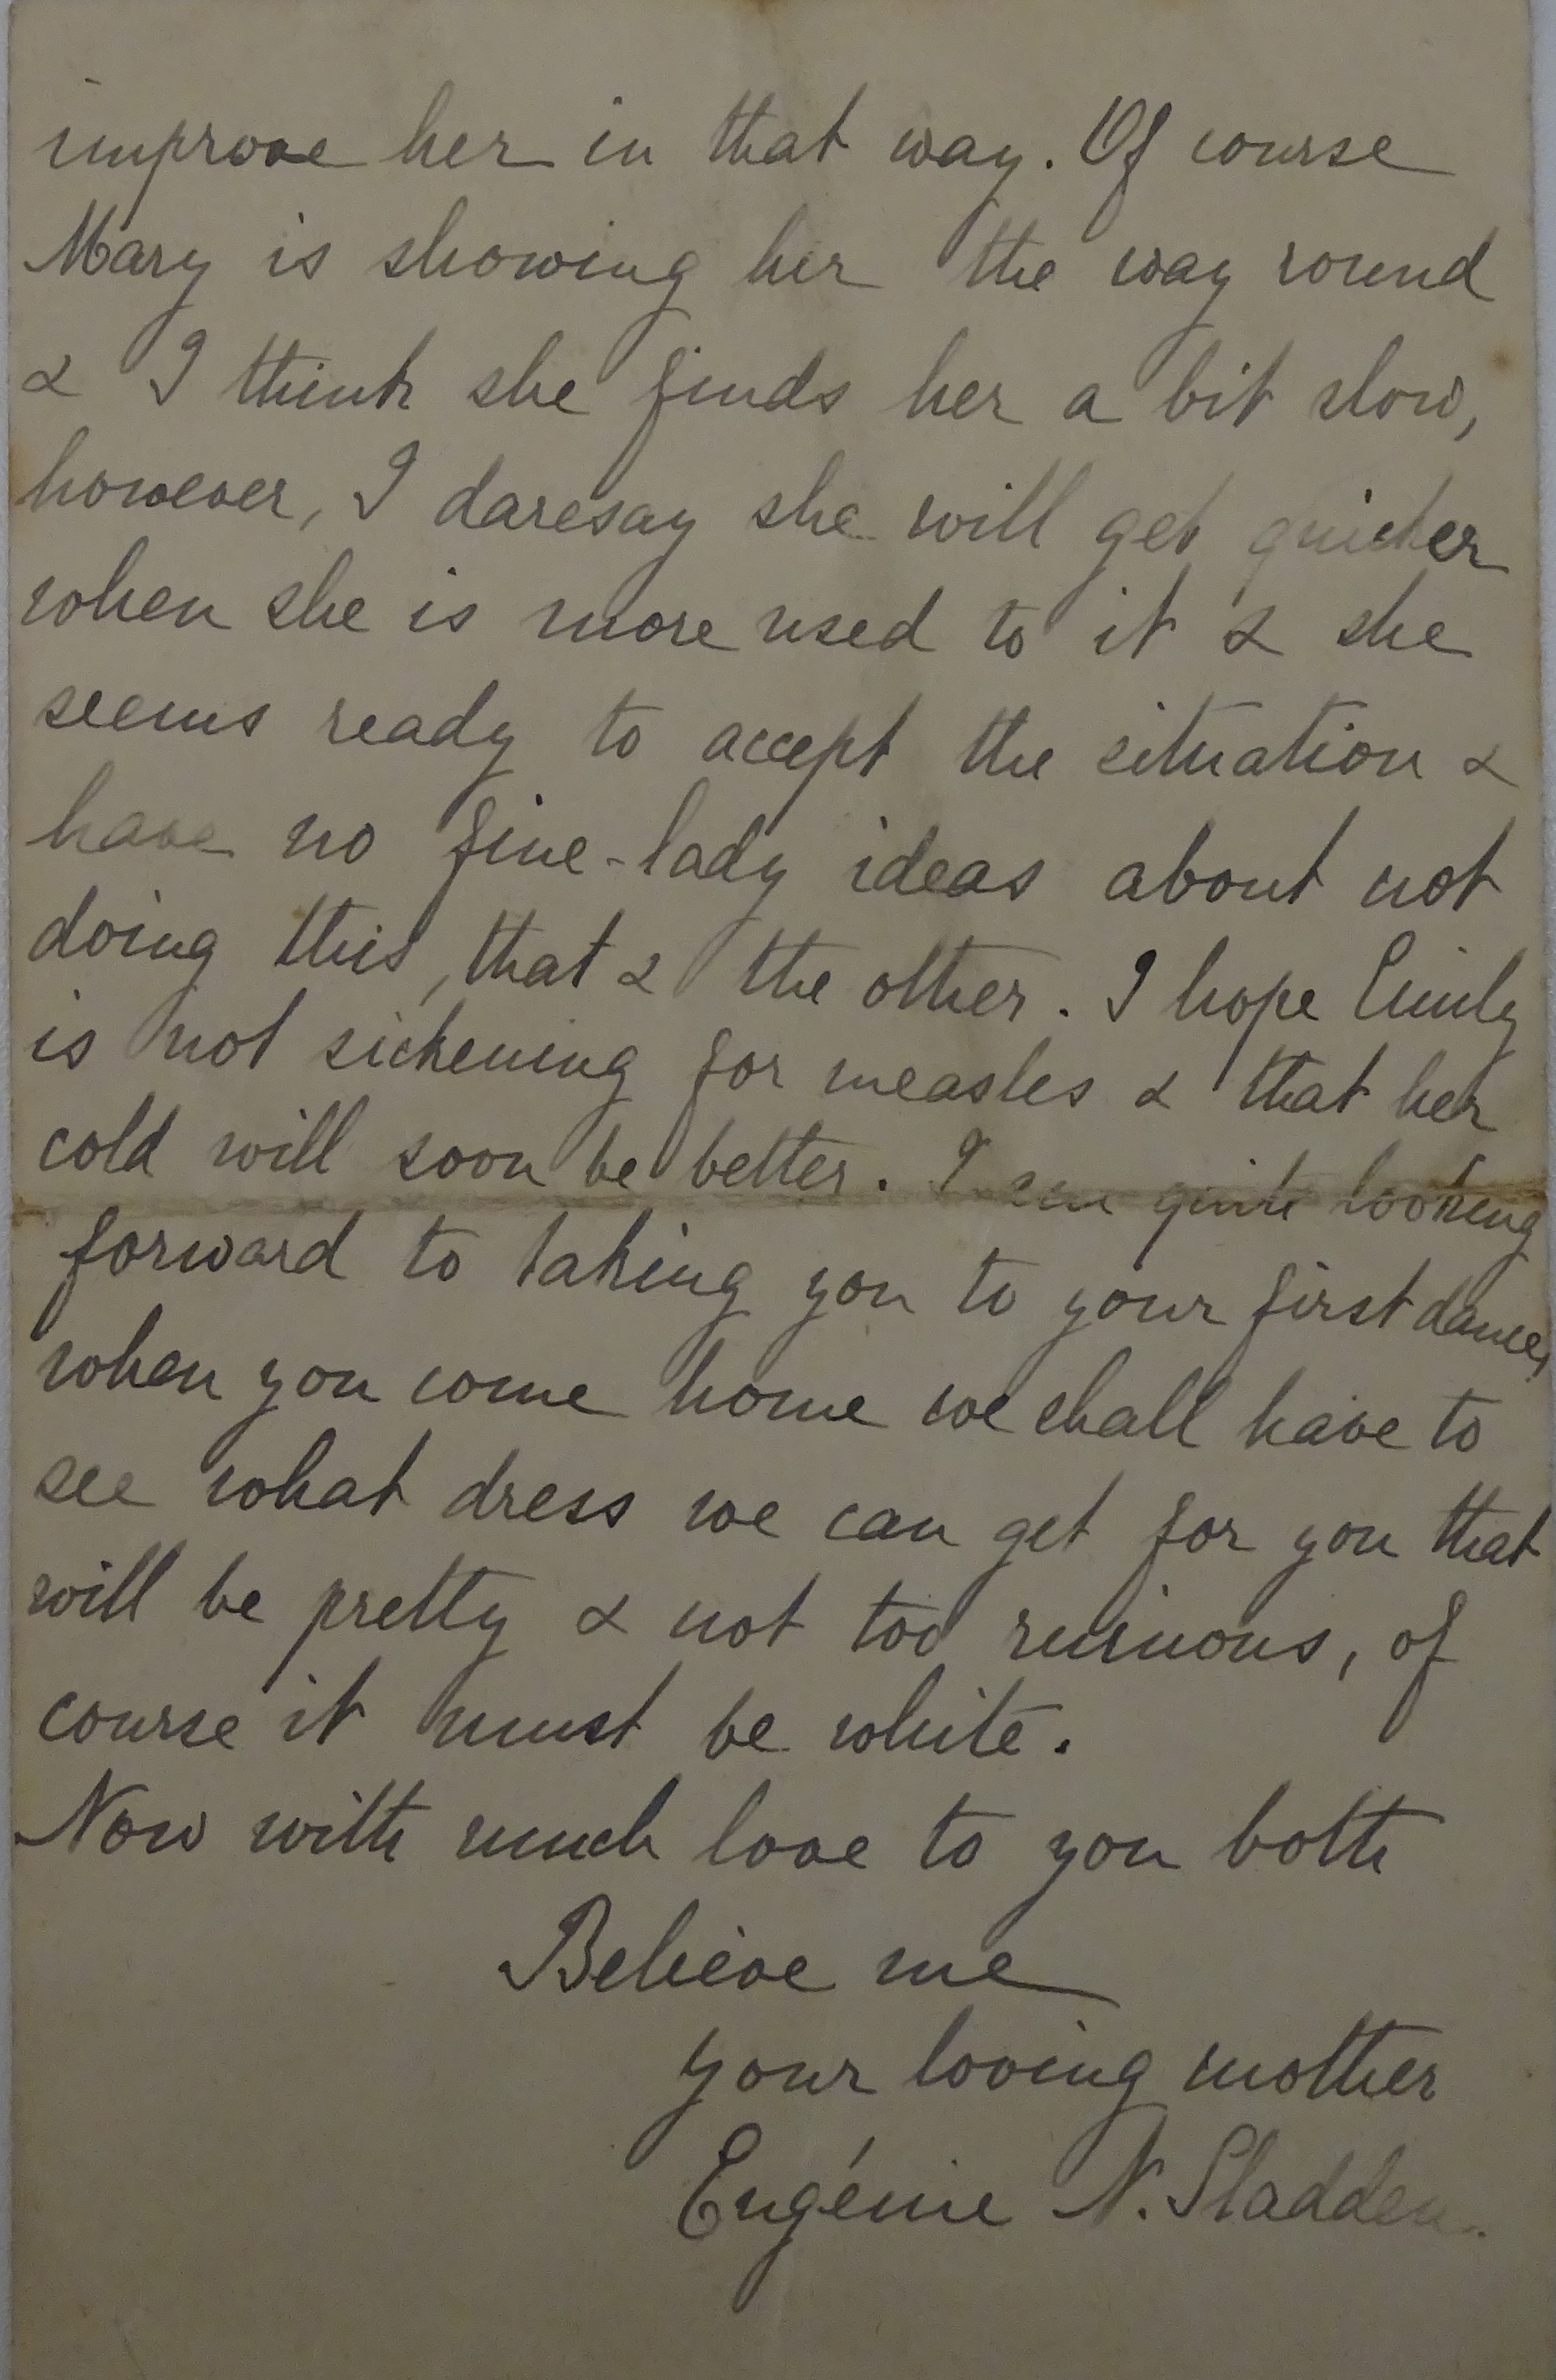 improve her in that way. Of course
Mary is showing her the way round
& I think she finds her a bit slow,
however, I daresay she will get quicker
when she is more used to it & she
seems ready to accept the situation &
have no fine-lady ideas about not
doing this, that & the other. I hope Emily
is not sickening for measles & that her
cold will soon be better. I am quite looking
forward to taking you to your first dance,
when you come home we shall have to
see what dress we can get for you that
will be pretty & not too ruinous, of
course it must be white.
Now with much love to you both
Believe me
your loving mother
Eugénie N. Sladden.